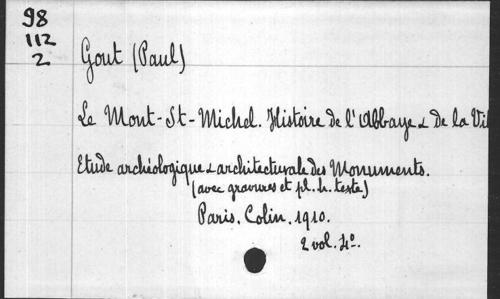 98
112
2
Gout (Paul)
Le Mont-St-Michel. Histoire de l'Abbaye & de la Vil
Etude archéologique & architecturale des Monuments.
(avec gravures et pl. h. texte)
Paris. Colin. 1910.
2 vol. 4°.